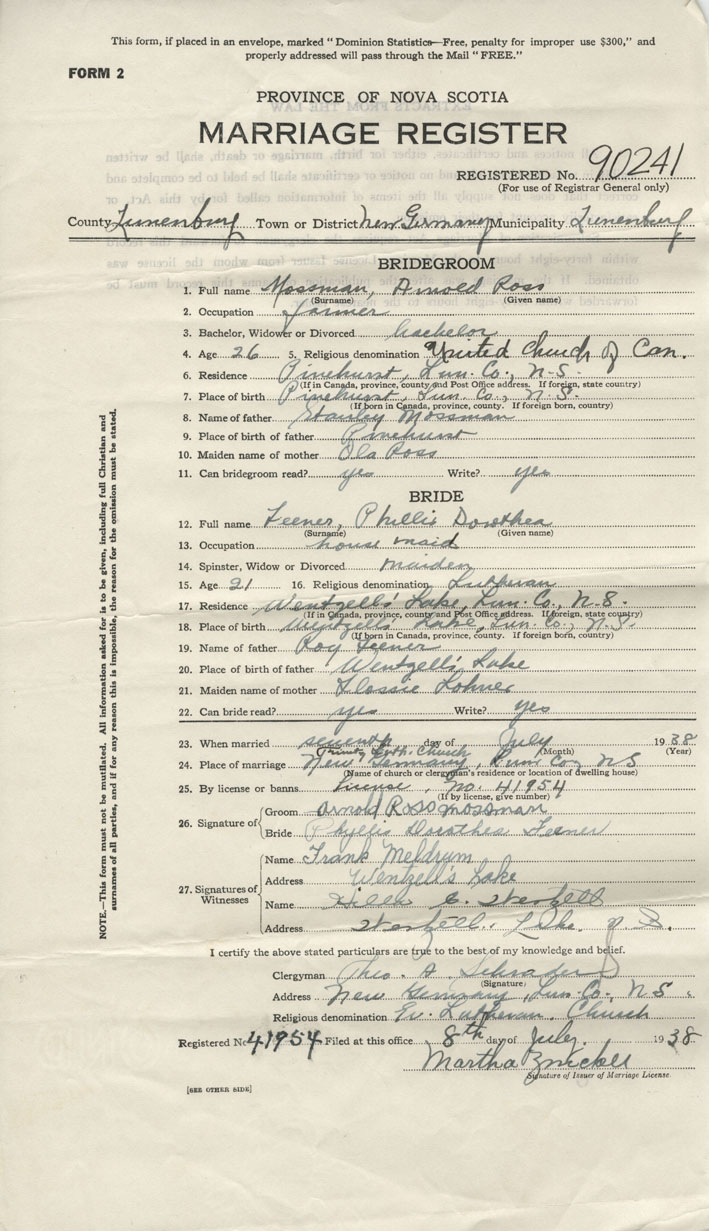 This form, if placed in an envelope, marked "Dominion Statistics—Free, penalty for improper use $300," and
properly addressed will pass through the Mail "FREE."
FORM 2
PROVINCE OF NOVA SCOTIA
MARRIAGE REGISTER
REGISTERED No. 90241
(For use of Registrar General only)
County Lunenburg Town or District New Germany Municipality Lunenburg
BRIDEGROOM
1. Full name Mossman, Arnold Ross
(Surname) (Given name)
2. Occupation farmer
3. Bachelor, Widower or Divorced bachelor
4. Age 26 5. Religious denomination United Church of Can.
6. Residence Pinehurst, Lun. Co., N.S.
(If in Canada, province, county and Post Office address. If foreign, state country)
7. Place of birth Pinehurst, Lun. Co., N.S.
(If born in Canada, province, county. If foreign born, country)
8. Name of father Stanley Mossman
9. Place of birth of father Pinehurst
10. Maiden name of mother Ola Ross
11. Can bridegroom read? yes Write? yes
BRIDE
12. Full name Feener, Phyllis Dorothea
(Surname) (Given name)
13. Occupation house maid
14. Spinster, Widow or Divorced maiden
15. Age 21 16. Religious denomination Lutheran
17. Residence Wentzell's Lake, Lun. Co., N.S.
(If in Canada, province, county and Post Office address. If foreign, state country)
18. Place of birth Wentzell's Lake, Lun. Co., N.S.
(If born in Canada, province, county. If foreign born, country)
19. Name of father Roy Feener
20. Place of birth of father Wentzell's Lake
21. Maiden name of mother Flossie Lohnes
22. Can bride read? yes Write? yes
23. When married seventh day of July 1938
(Month) (Year)
Trinity Luth. Church
24. Place of marriage New Germany, Lun. Co., N S
(Name of church or clergyman's residence or location of dwelling house)
25. By license or banns. License, No. 41954
(If by license, give number)
26. Signature of
Groom Arnold Ross Mossman
Bride Phyllis Dorothea Feener
27. Signatures of Witnesses
Name Frank Meldrum
Address Wentzell's Lake
Name
Address Lake N.S.
I certify the above stated particulars are true to the best of my knowledge and belief.
Clergyman Theo. A. Schrader
(Signature)
Address New Germany, Lun. Co., N S.
Religious denomination Ev. Lutheran Church
Registered No. 41954 Filed at this office 8th day of July 1938
Martha Zwicker
Signature of Issuer of Marriage License.
[SEE OTHER SIDE]
NOTE.—This form must not be mutilated. All information asked for is to be given, including full Christian and
surnames of all parties, and if for any reason this is impossible, the reason for the omission must be stated.